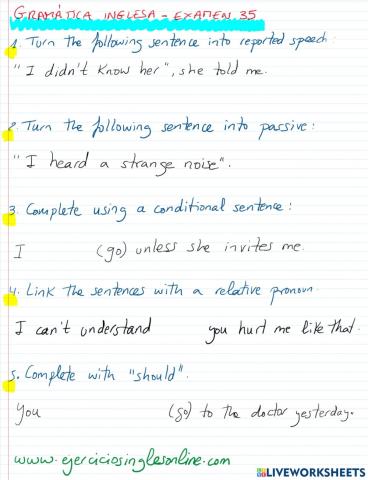 GRAMÁTICA INGLESA - EXAMEN 35
1. Turn the following sentence into reported speech:
"I didn't know her", she told me.
2. Turn the following sentence into passive:
"I heard a strange noise".
3. Complete using a conditional sentence:
I (go) unless she invites me.
4. Link the sentences with a relative pronoun.
I can't understand you hurt me like that.
5. Complete with "should".
You (go) to the doctor yesterday.
www.ejerciciosinglesonline.com
LIVEWORKSHEETS